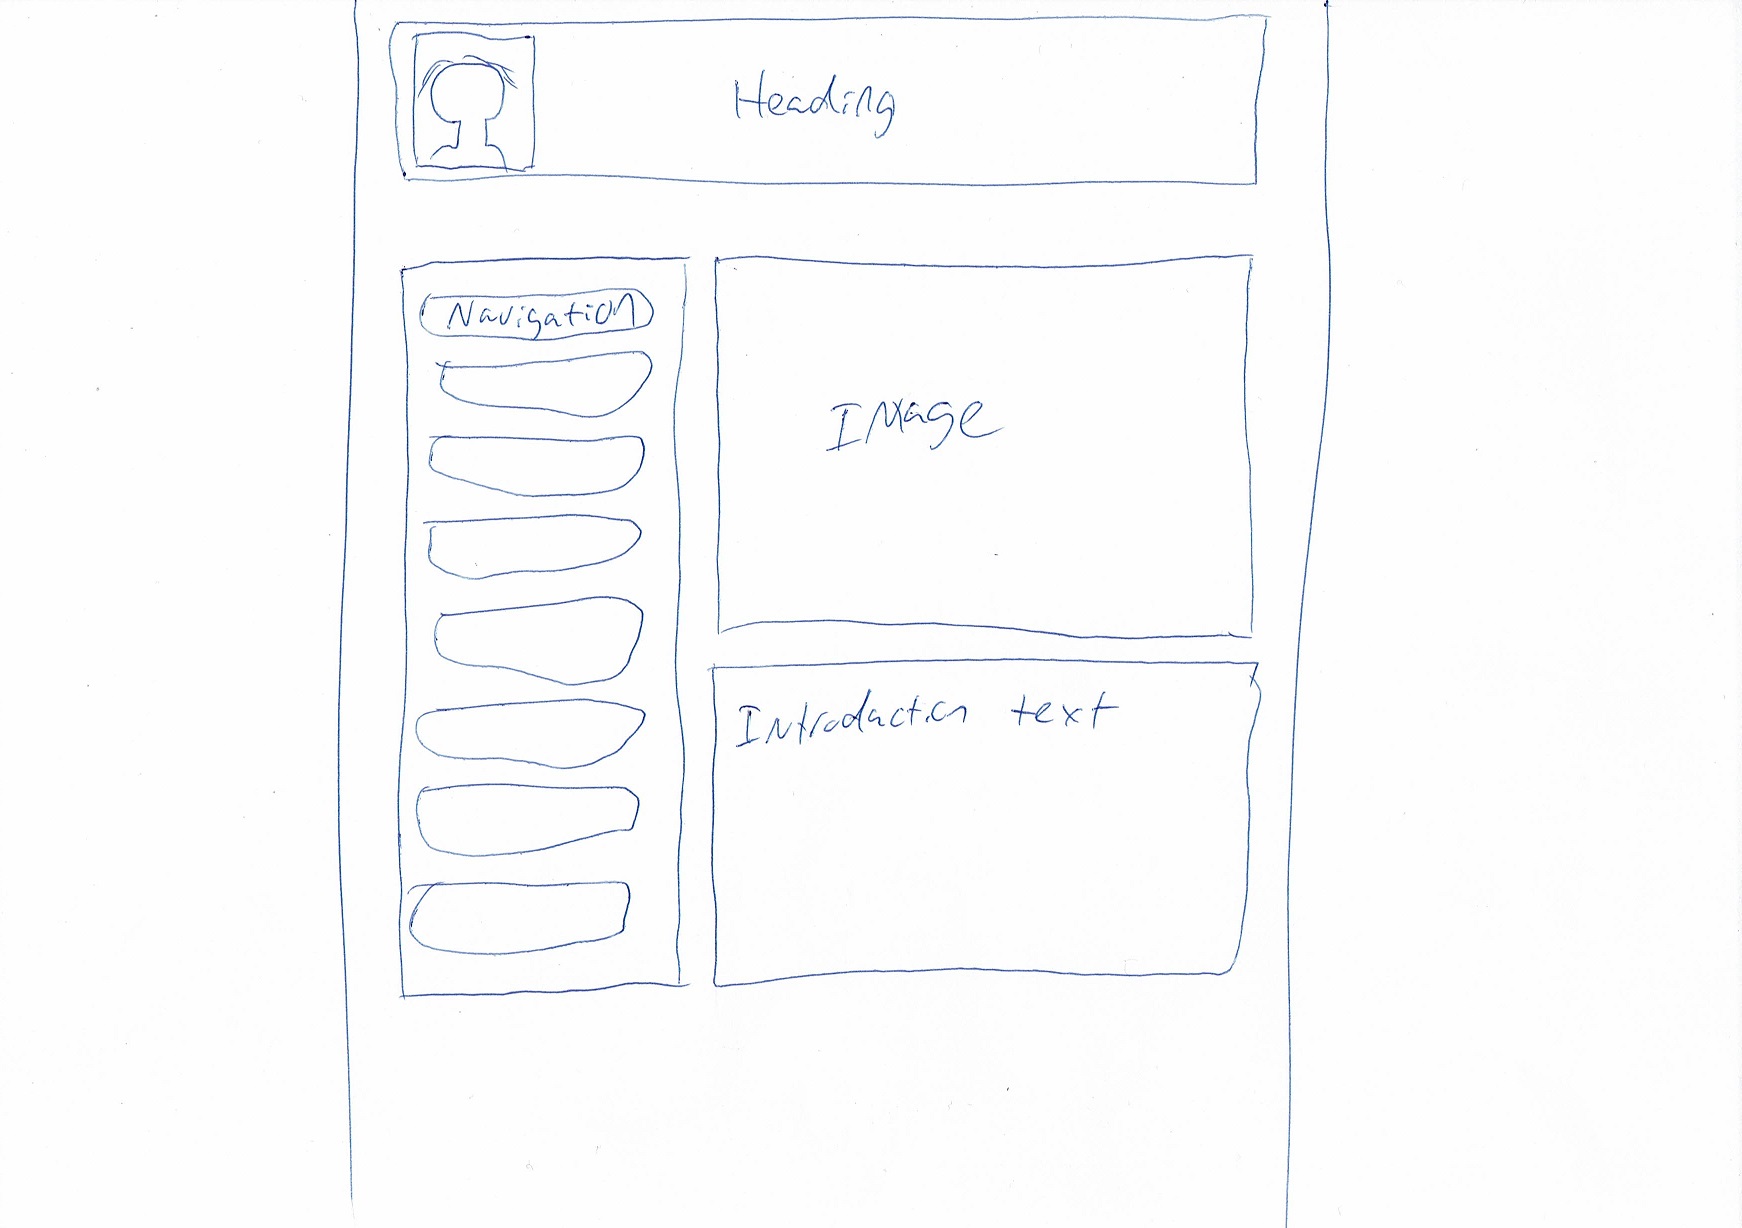 Heading
Navigation
Image
Introduction text